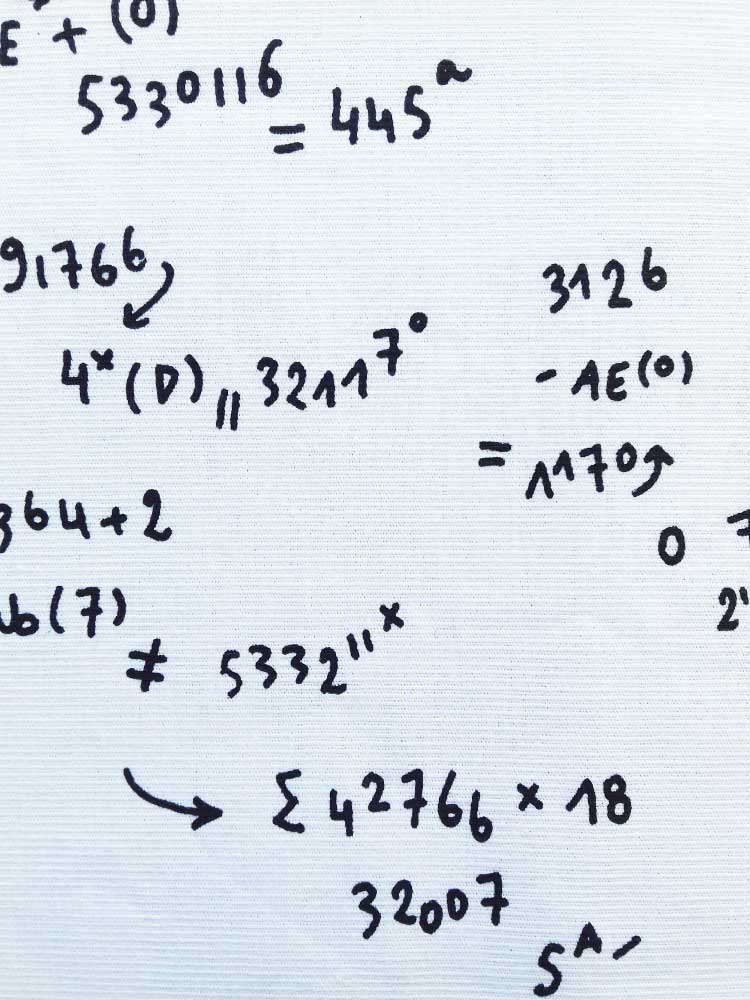 E + (0)
5330116
= 445ᵃ
91766
4ˣ (D) ॥ 32117°
3126
- AE(0)
= 1170
364 + 2
0 7
(7)
2"
≠ 5332"ˣ
→ Σ 42766 × 18
32007
5ᴬ -